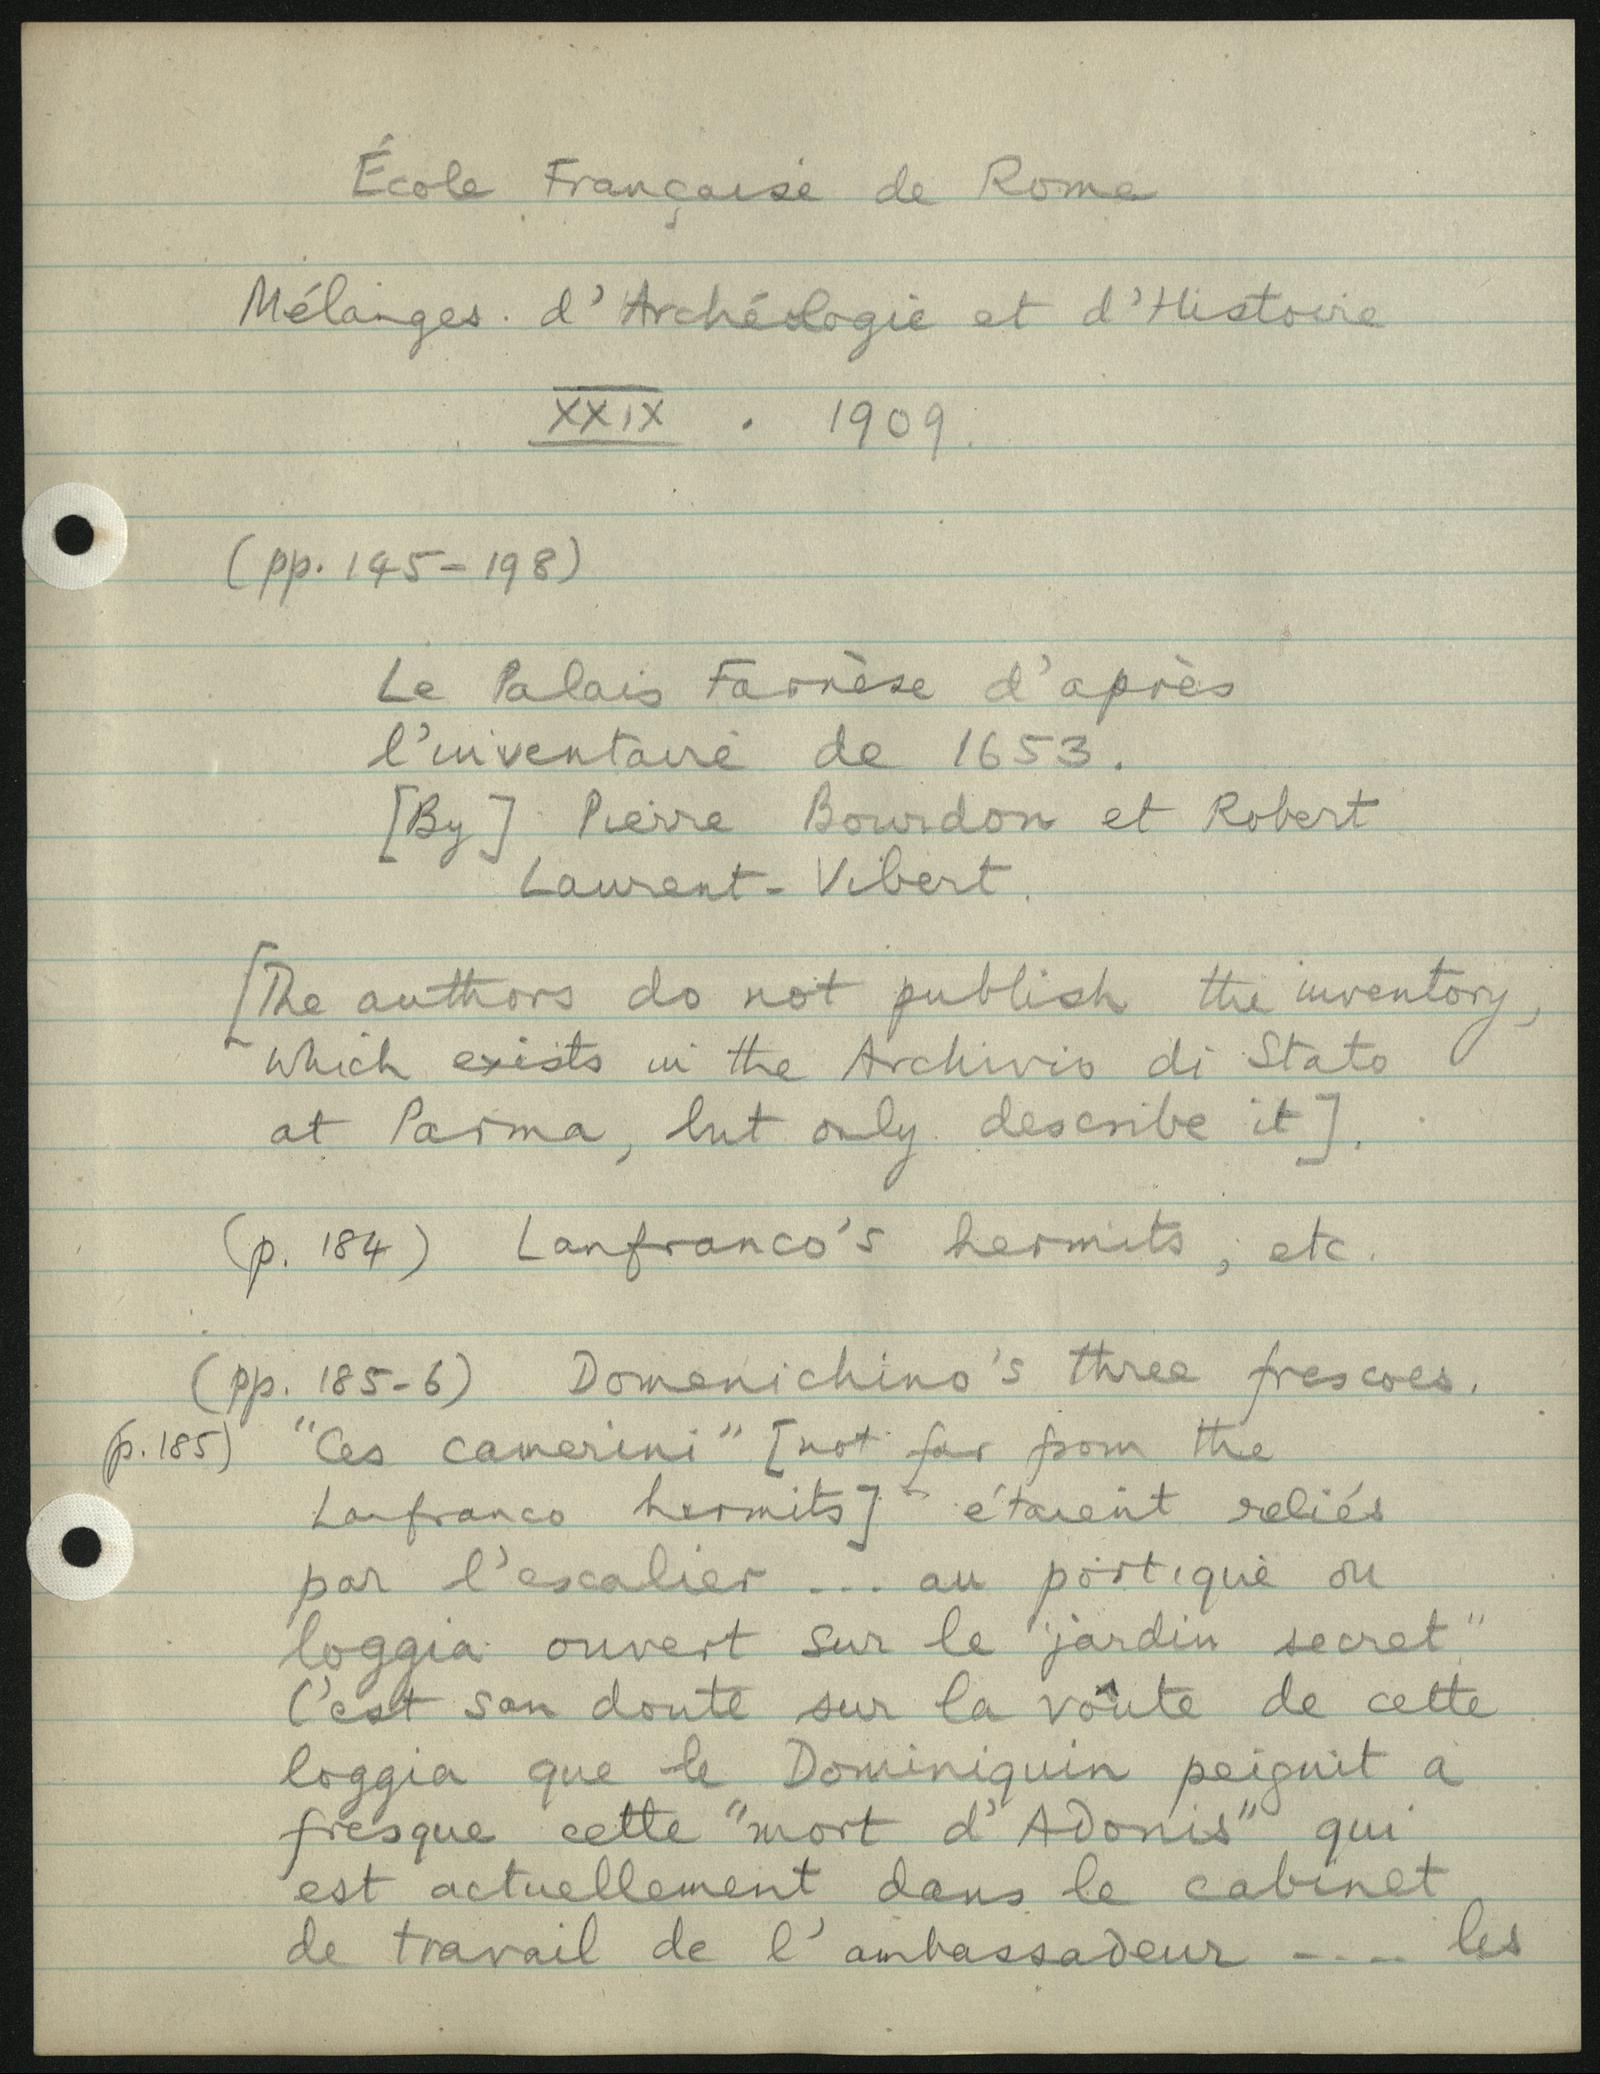 École Française de Rome
Mélanges d'Archéologie et d'Histoire
XXIX . 1909.
(pp. 145-198)
Le Palais Farnèse d'après
l'inventaire de 1653.
[By] Pierre Bourdon et Robert
Laurent-Vibert.
[The authors do not publish the inventory,
which exists in the Archivio di Stato
at Parma, but only describe it].
(p. 184) Lanfranco's hermits, etc.
(pp. 185-6) Domenichino's three frescoes.
(p. 185) "Ces camerini" [not far from the
Lanfranco hermits] "étaient reliés
par l'escalier ... au portique ou
loggia ouvert sur le "jardin secret"
C'est san doute sur la voûte de cette
loggia que le Dominiquin peignit a
fresque cette "mort d'Adonis" qui
est actuellement dans le cabinet
de travail de l'ambassadeur .... les